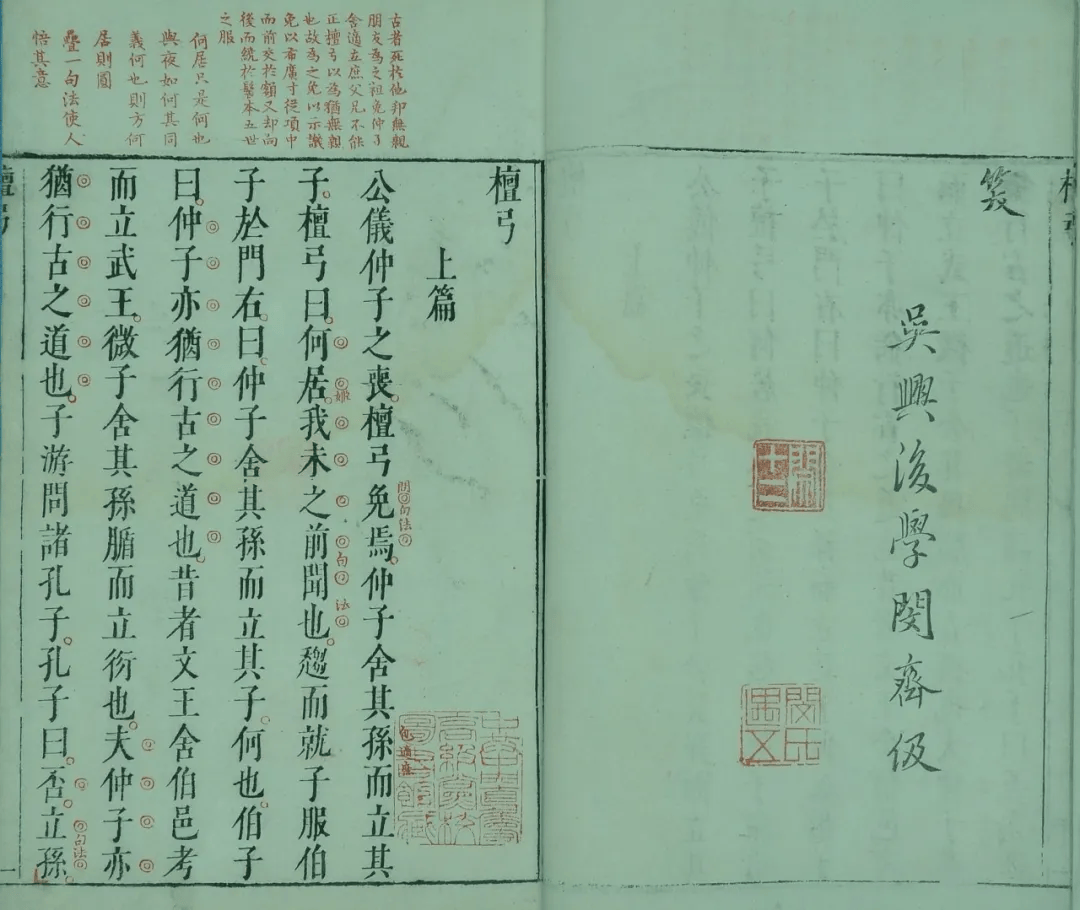 吳興後學閔齊伋
閔十二
閔氏遇五
古者死於他邦無親
朋友為之袒免仲子
舍適立庶父兄不能
正檀弓以為猶無親
也故為之免以示譏
免以布廣寸從項中
而前交於額又却向
後而繞於髻本五世
之服
何居只是何也
與夜如何其同
義何也則方何
居則圓
疊一句法使人
悟其意
檀弓
上篇
公儀仲子之喪。檀弓免焉。仲子舍其孫而立其
句法
子。檀弓曰。何居。我未之前聞也。趨而就子服伯
姬
句法
子於門右。曰。仲子舍其孫而立其子。何也。伯子
曰。仲子亦猶行古之道也。昔者文王舍伯邑考
而立武王。微子舍其孫腯而立衍也。夫仲子亦
猶行古之道也。子游問諸孔子。孔子曰。否。立孫。
句法
檀弓
一